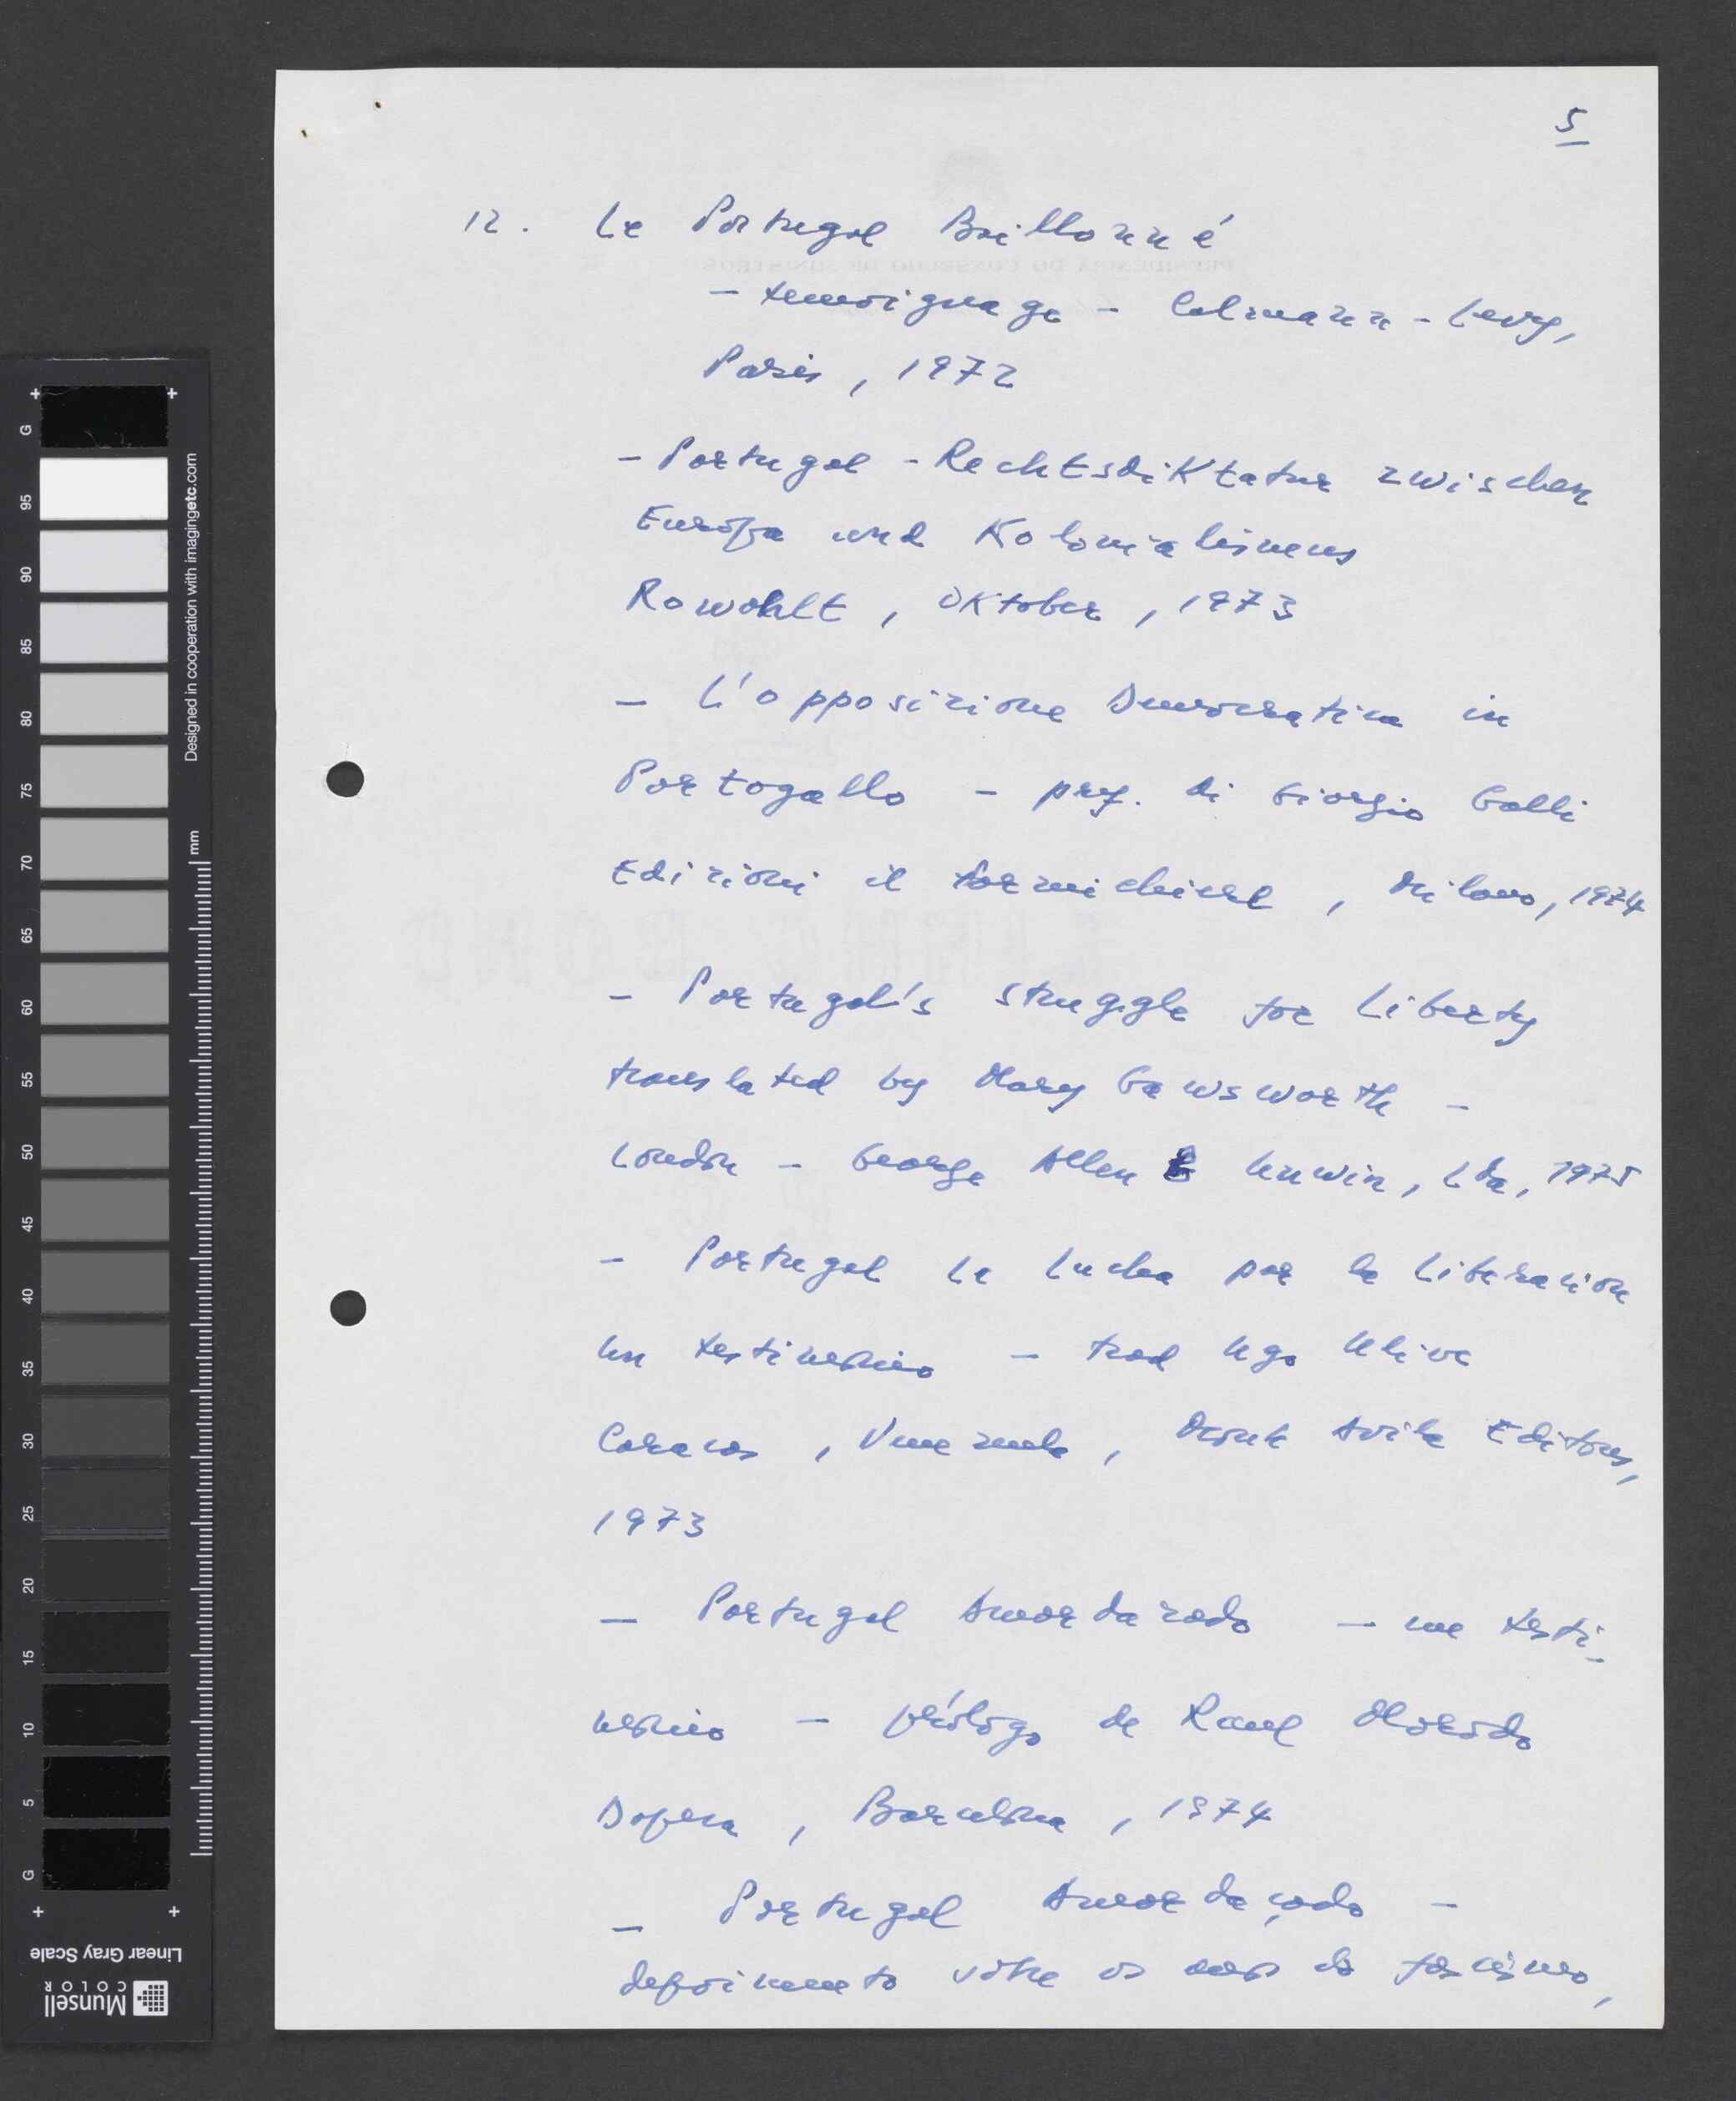 5
12. Le Portugal Baillonné
- temoignage - Calmann-Levy,
Paris, 1972
- Portugal - Rechtsdiktatur zwischen
Europa und Kolonialismus
Rowohlt, Oktober, 1973
- L'opposizione Democratica in
Portogallo - pref. di Giorgio Galli
Edizioni il formichiere, Milano, 1974
- Portugal's struggle for Liberty
translated by Mary Gawsworth -
London - George Allen & Unwin, Lda, 1975
- Portugal la lucha por la Liberacion
un testimonio - trad Ugo Ulive
Caracas, Venezuela, Monte Avila Editores,
1973
- Portugal Amordazado - un testi-
monio - prólogo de Raul Morodo
Dopesa, Barcelona, 1974
- Portugal Amordaçado -
depoimento sobre os anos do fascismo,
G 95 90 85 80 75 70 65 60 55 50 45 40 35 30 25 20 15 10 5 G
Designed in cooperation with imagingetc.com
mm
Linear Gray Scale
Munsell
COLOR